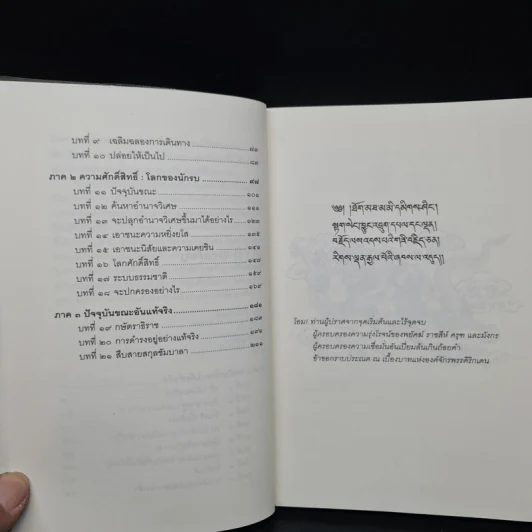 บทที่ ๙ เฉลิมฉลองการเดินทาง
บทที่ ๑๐ ปล่อยให้เป็นไป
ภาค ๒ ความศักดิ์สิทธิ์ : โลกของนักรบ ๙๗
บทที่ ๑๑ ปัจจุบันขณะ
บทที่ ๑๒ ค้นหาอำนาจวิเศษ
บทที่ ๑๓ จะปลุกอำนาจวิเศษขึ้นมาได้อย่างไร
บทที่ ๑๔ เอาชนะความหยิ่งยโส
บทที่ ๑๕ เอาชนะนิสัยและความเคยชิน
บทที่ ๑๖ โลกศักดิ์สิทธิ์
บทที่ ๑๗ ระบบธรรมชาติ
บทที่ ๑๘ จะปกครองอย่างไร
ภาค ๓ ปัจจุบันขณะอันแท้จริง ๑๘๑
บทที่ ๑๙ กษัตราธิราช
บทที่ ๒๐ การดำรงอยู่อย่างแท้จริง
บทที่ ๒๑ สืบสายสกุลชัมบาลา ๒๑๑
༄༅། །ཐོག་མཐའ་མི་དམིགས་ཤིང་།
སྟག་སེང་ཁྱུང་འབྲུག་དཔལ་དང་ལྡན།
བརྗོད་ལས་འདས་པའི་གཟི་བརྗིད་ཅན།
རིགས་ལྡན་རྒྱལ་པོའི་ཞབས་ལ་འདུད།།
โอม! ท่านผู้ปราศจากจุดเริ่มต้นและไร้จุดจบ
ผู้ครอบครองความรุ่งโรจน์ของพยัคฆ์ ราชสีห์ ครุฑ และมังกร
ผู้ครอบครองความเชื่อมั่นอันเปี่ยมล้นเกินถ้อยคำ
ข้าขอกราบประณต ณ เบื้องบาทแห่งองค์จักรพรรดิริกเดน